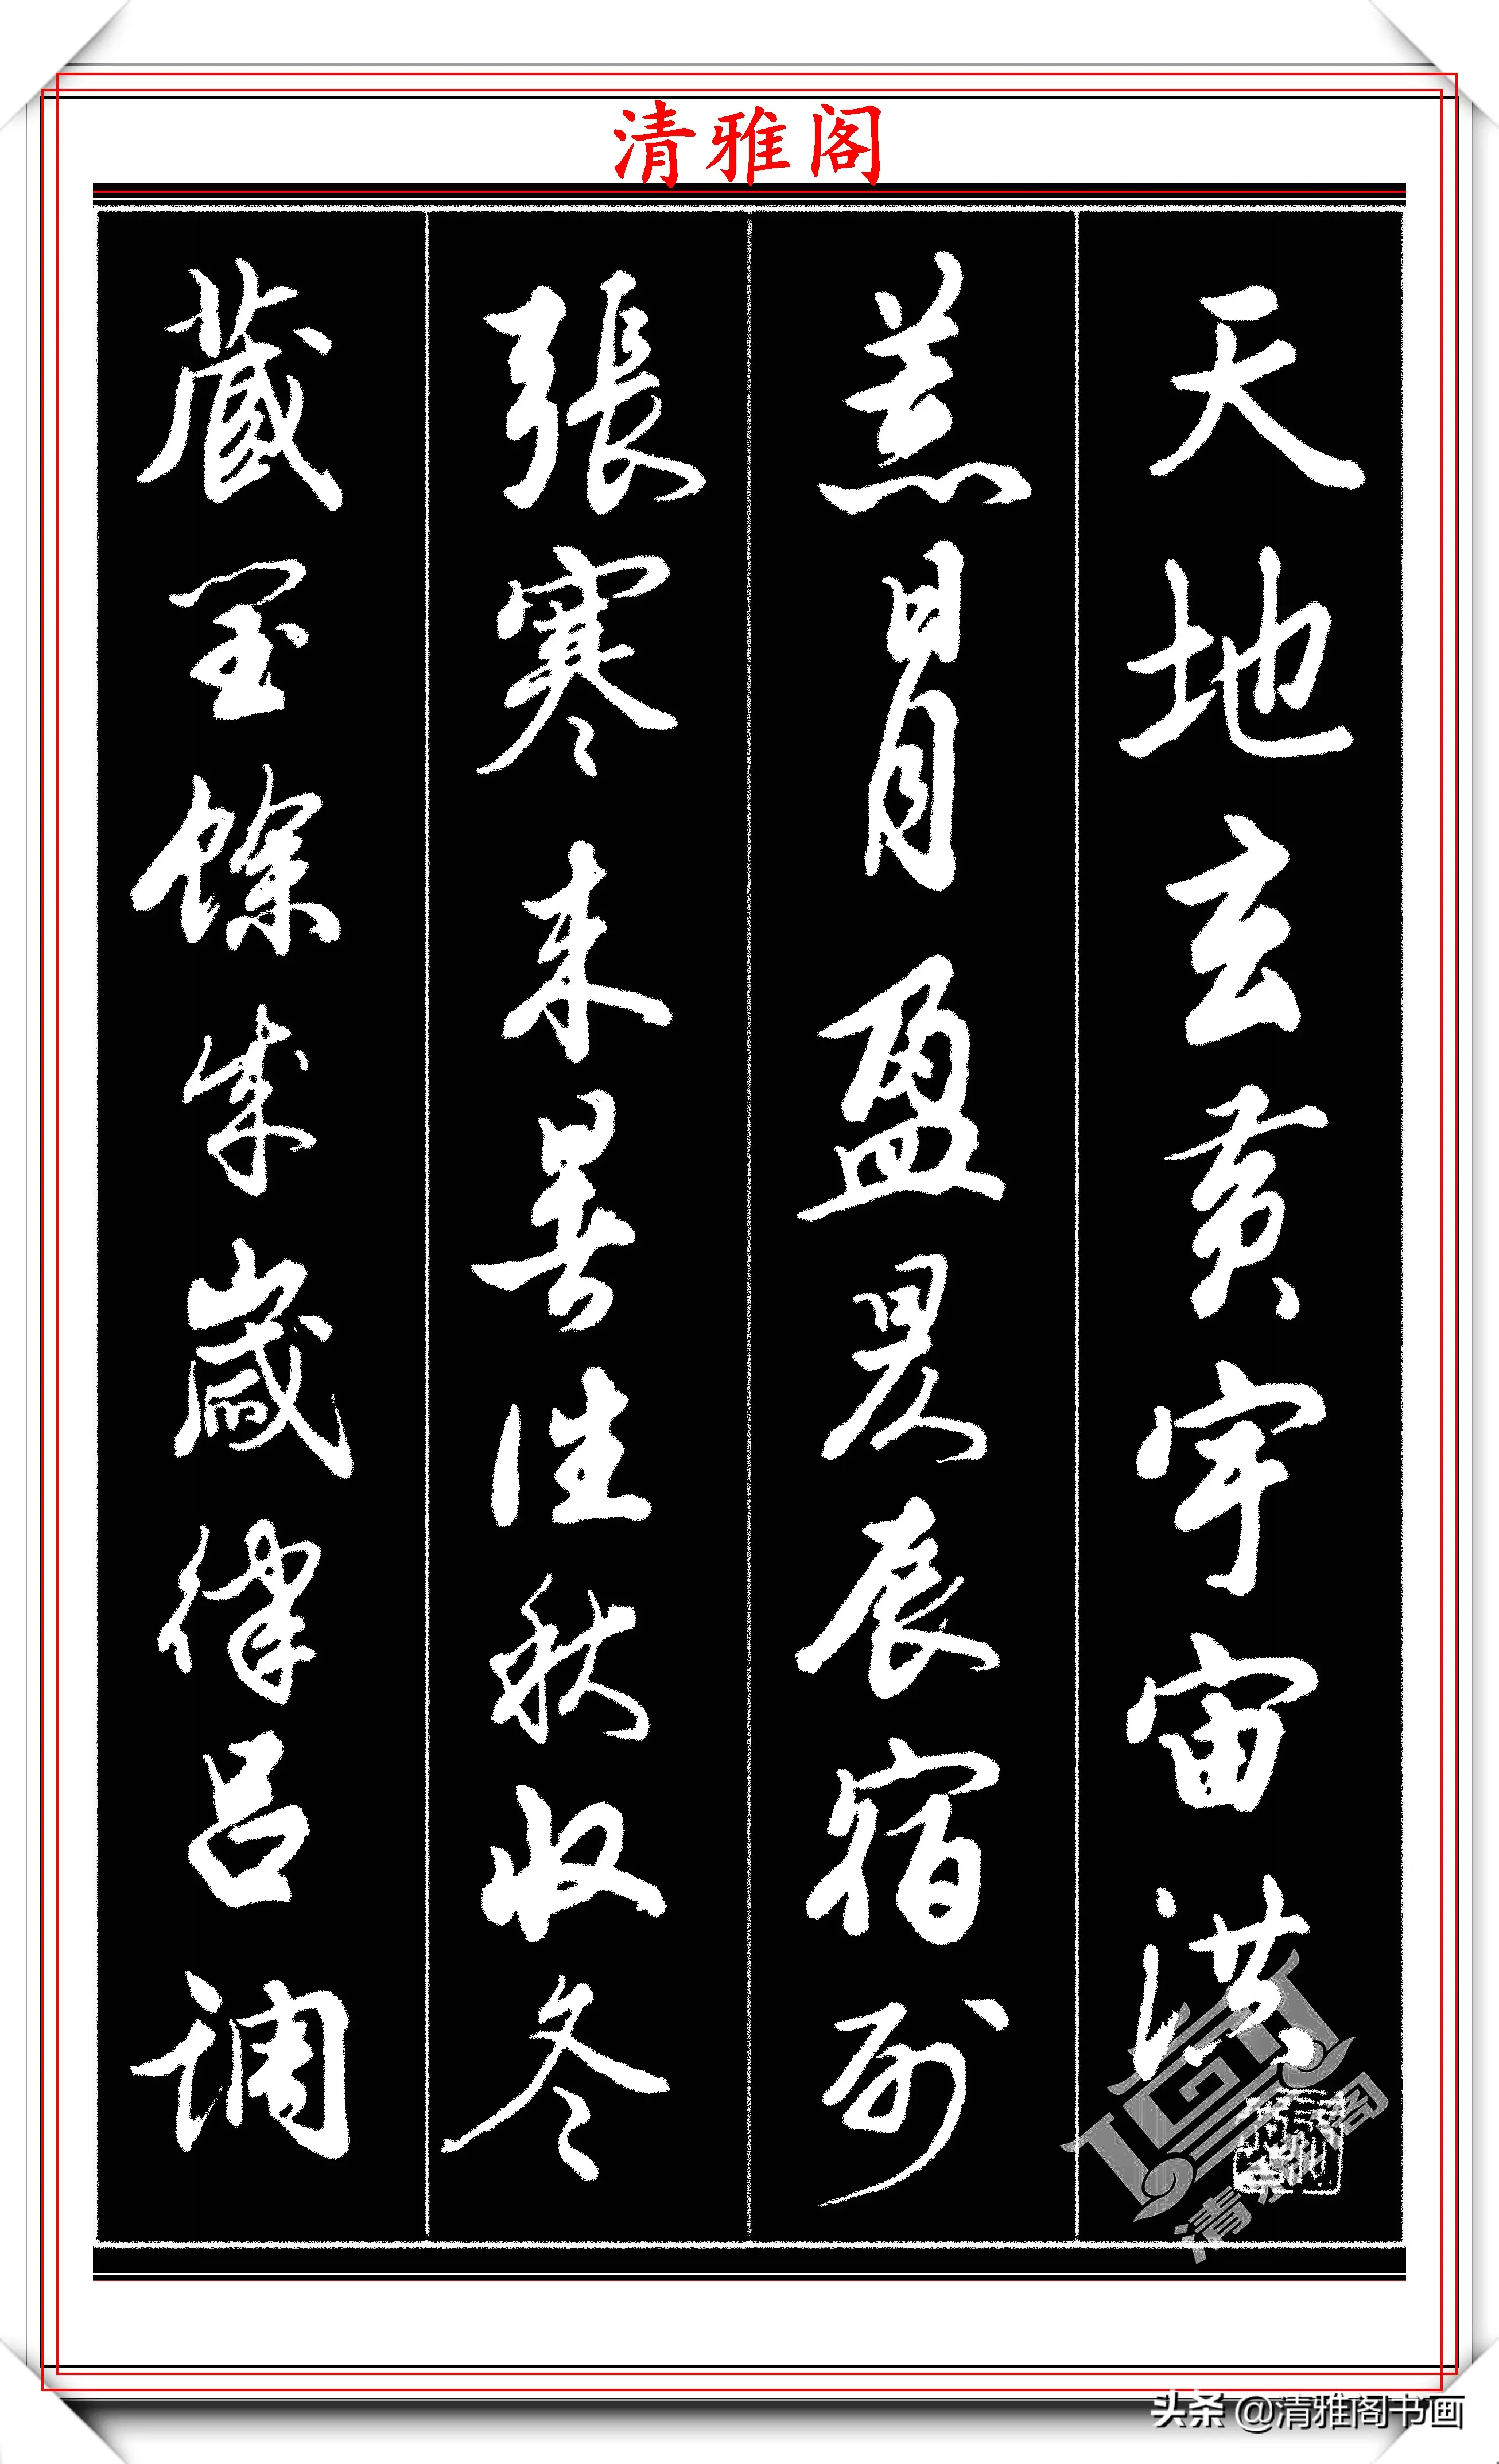 清雅阁
天地玄黄宇宙洪
荒日月盈昃辰宿列
張寒来暑往秋收冬
藏閏餘成歲律吕調
清雅阁
头条 @清雅阁书画